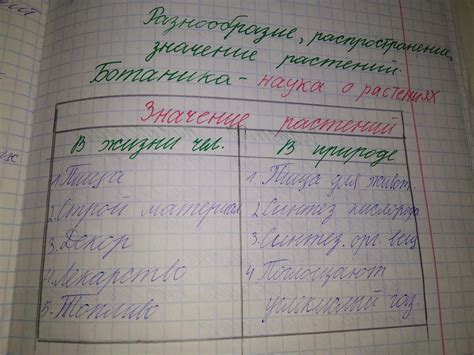 Разнообразие, распространение,
значение растений.
Ботаника - наука о растениях
Значение растений
В жизни чел. В природе
1. Пища 1. Пища для живот.
2. Строй материал 2. Синтез кислорода
3. Декор 3. Синтез. орг. вещ
4. Лекарство 4. Поглощают
5. Топливо углекислый газ.